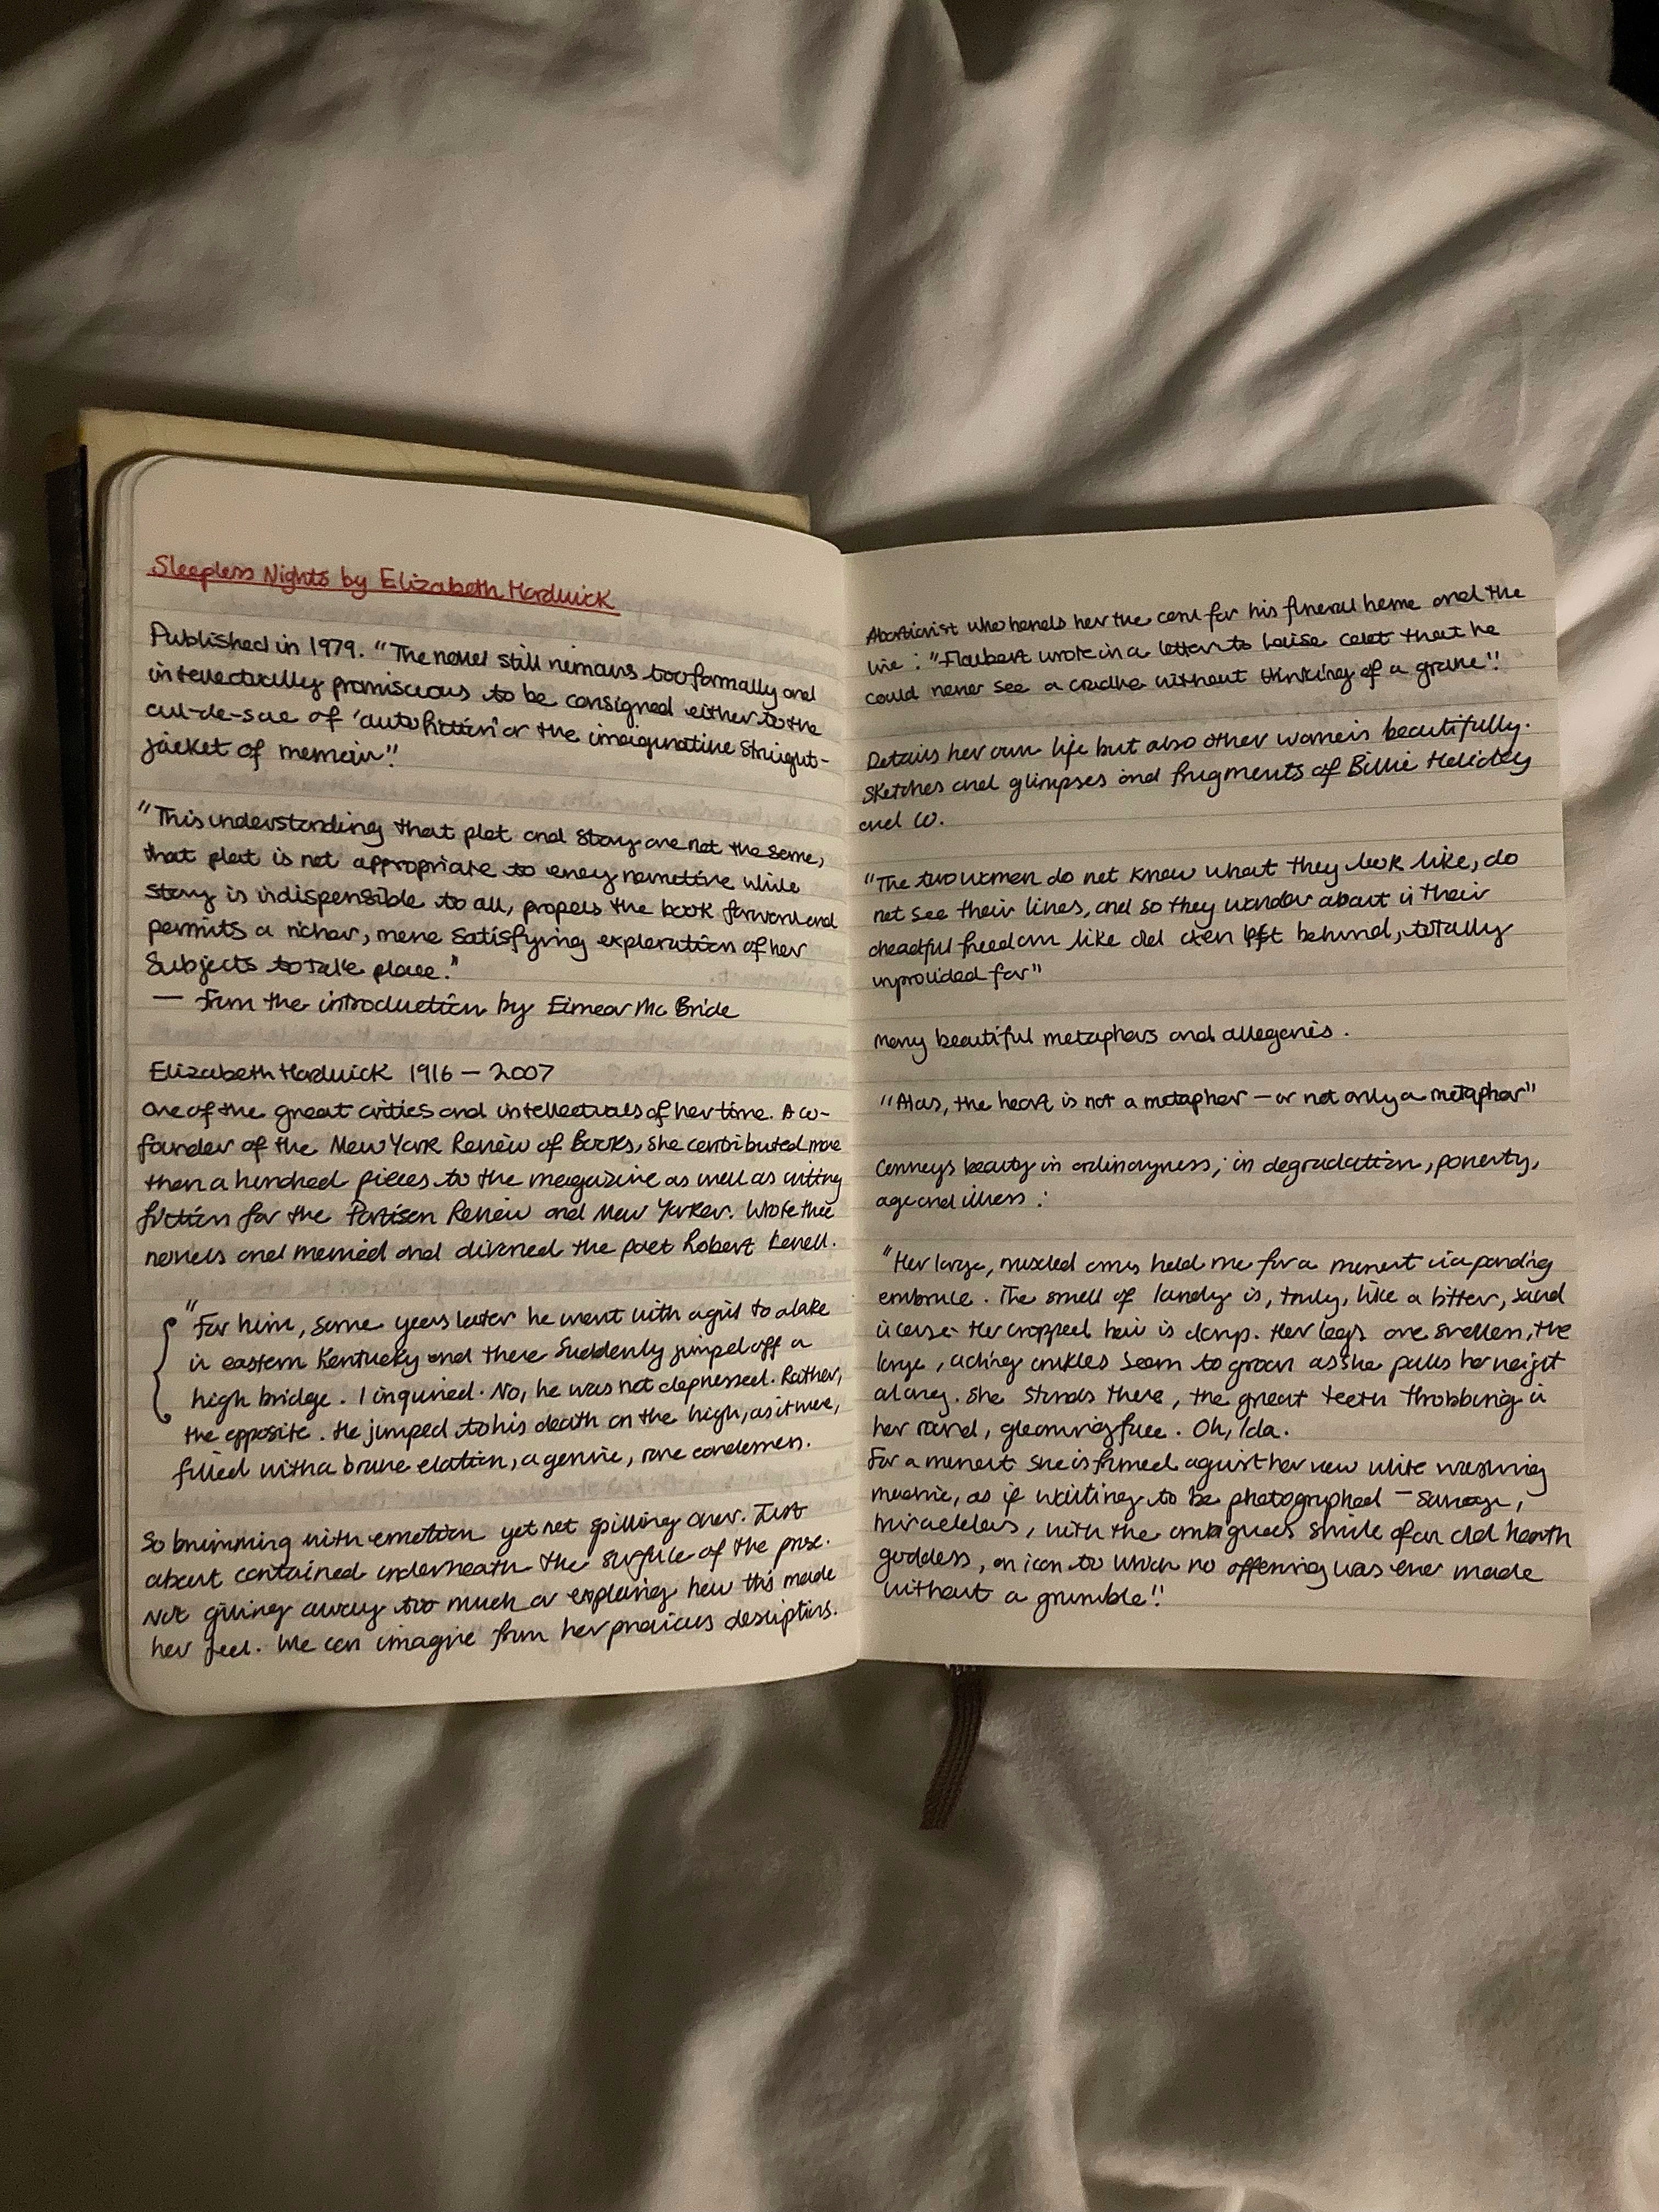 Sleepless Nights by Elizabeth Hardwick
Published in 1979. "The novel still remains too formally and
intellectually promiscuous to be consigned either to the
cul-de-sac of 'autofiction' or the imaginative straight-
jacket of memoir."
"This understanding that plot and story are not the same,
that plot is not appropriate to every narrative while
story is indispensible to all, propels the book forward and
permits a richer, more satisfying exploration of her
subjects to take place."
— From the introduction by Eimear McBride
Elizabeth Hardwick 1916 — 2007
One of the great critics and intellectuals of her time. A co-
founder of the New York Review of Books, she contributed more
than a hundred pieces to the magazine as well as writing
fiction for the Partisan Review and New Yorker. Wrote three
novels and married and divorced the poet Robert Lowell.
"For him, some years later he went with a girl to a lake
in eastern Kentucky and there suddenly jumped off a
high bridge. I inquired. No, he was not depressed. Rather,
the opposite. He jumped to his death on the high, as it were,
filled with a brave elation, a genuine, rare
So brimming with emotion yet not spilling over. Just
about contained underneath the surface of the prose.
Not giving away too much or explaining how this made
her feel. We can imagine from her precious descriptions.
Abortionist who hands her the card for his funeral home and the
line: "Flaubert wrote in a letter to Louise Colet that he
could never see a cradle without thinking of a grave."
Details her own life but also other women's beautifully.
Sketches and glimpses and fragments of Billie Holiday
and co.
"The two women do not know what they look like, do
not see their lines, and so they wander about in their
dreadful freedom like old oxen left behind, totally
unprovided for"
Many beautiful metaphors and allegories.
"Alas, the heart is not a metaphor — or not only a metaphor"
Conveys beauty in ordinaryness; in degradation, poverty,
age and illness:
"Her large, muscled arms held me for a moment in a
embrace. The smell of laundry is, truly, like a bitter,
incense. Her cropped hair is damp. Her legs are swollen, the
large, aching ankles seem to groan as she pulls her weight
along. She stands there, the great teeth throbbing in
her round, gleaming face. Oh, Ida.
For a moment she is framed against her new white washing
machine, as if waiting to be photographed — savage,
miraculous, with the ambiguous smile of an old hearth
goddess, an icon to whom no offering was ever made
without a grumble."